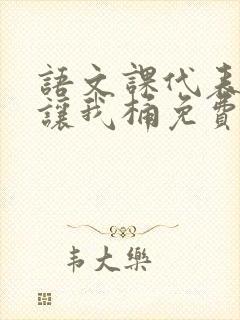 語文課代表
讓我桶免費
韦大樂